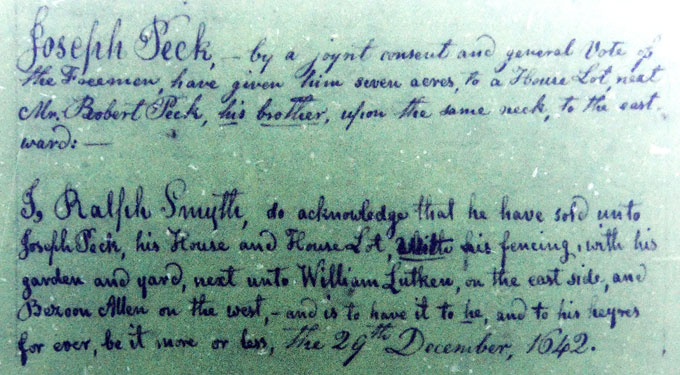 Joseph Peck, – by a joynt consent and general Vote of
the Freemen, have given him seven acres, to a House Lot, next
Mr. Robert Peck, his brother, upon the same neck, to the east-
ward: —
I, Ralph Smyth, do acknowledge that he have sold unto
Joseph Peck, his House and House Lot, his fencing, with his
garden and yard, next unto William Lutken, on the east side, and
Bozoon Allen on the west, – and is to have it to he, and to his heyres
for ever, be it more or less, the 29th December, 1642.